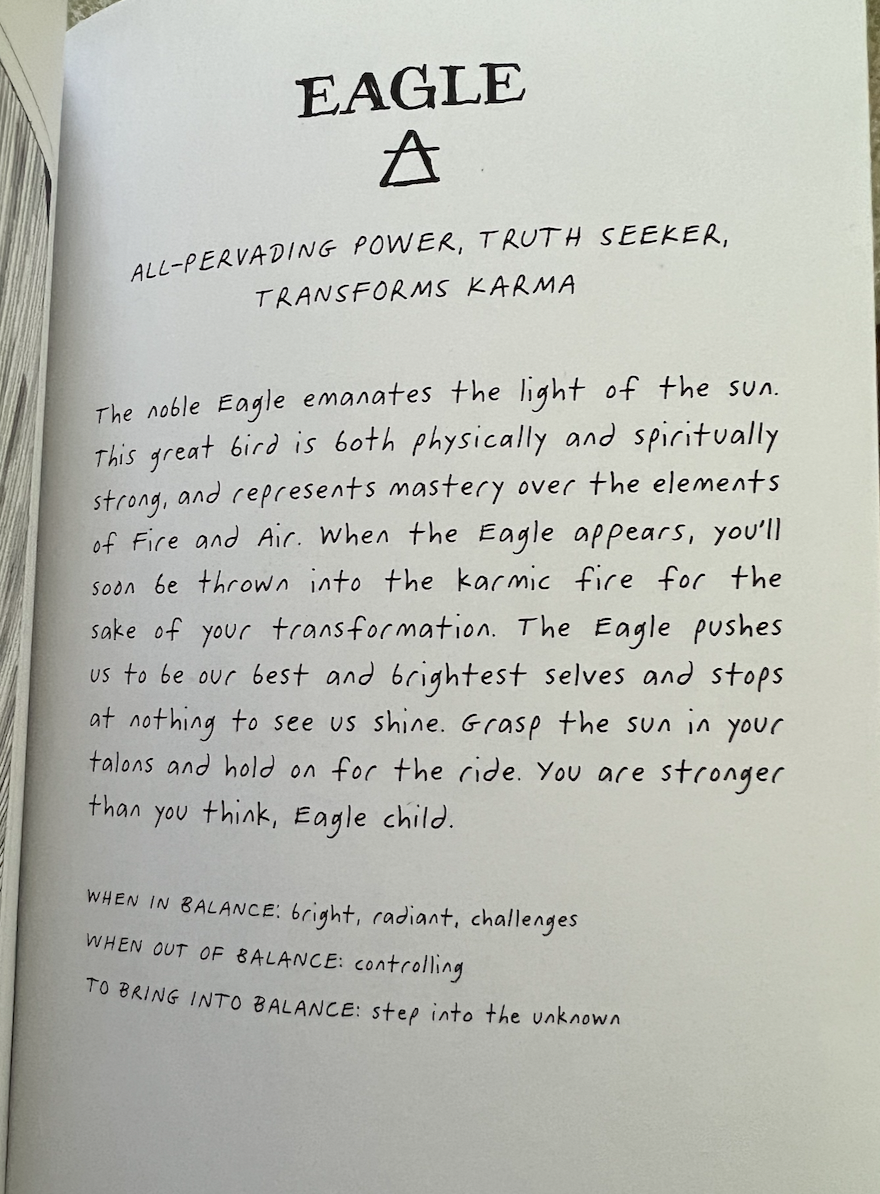 EAGLE
ALL-PERVADING POWER, TRUTH SEEKER,
TRANSFORMS KARMA
The noble Eagle emanates the light of the sun.
This great bird is both physically and spiritually
strong, and represents mastery over the elements
of Fire and Air. When the Eagle appears, you'll
soon be thrown into the karmic fire for the
sake of your transformation. The Eagle pushes
us to be our best and brightest selves and stops
at nothing to see us shine. Grasp the sun in your
talons and hold on for the ride. You are stronger
than you think, Eagle child.
WHEN IN BALANCE: bright, radiant, challenges
WHEN OUT OF BALANCE: controlling
TO BRING INTO BALANCE: step into the unknown